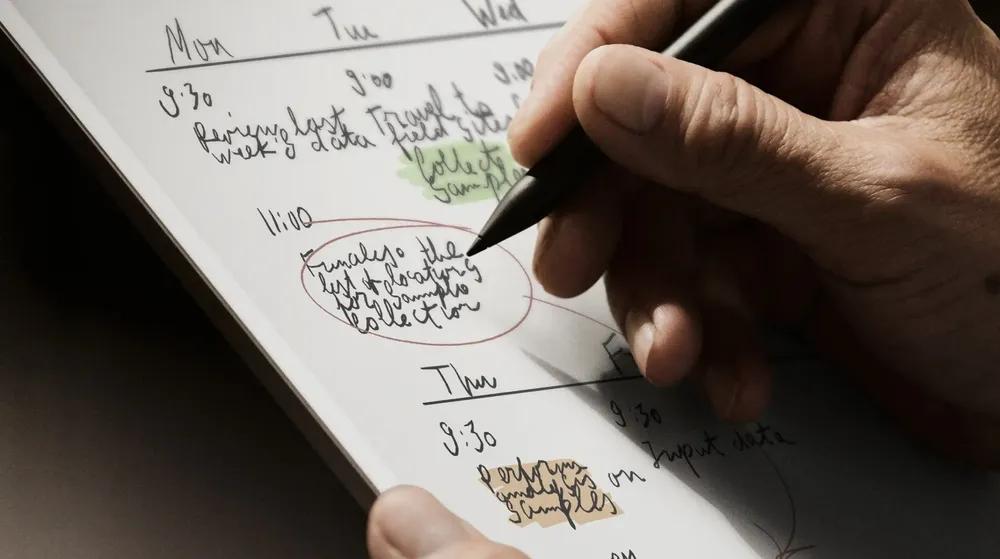 Mon Tue Wed
9:30
Review last
week's data
9:00
Travel to
field sites
Collect
samples
9:00
11:00
Finalize the
list of locations
for sample
collection
Thu F
9:30
Perform
analysis on
samples
9:30
Input data
on